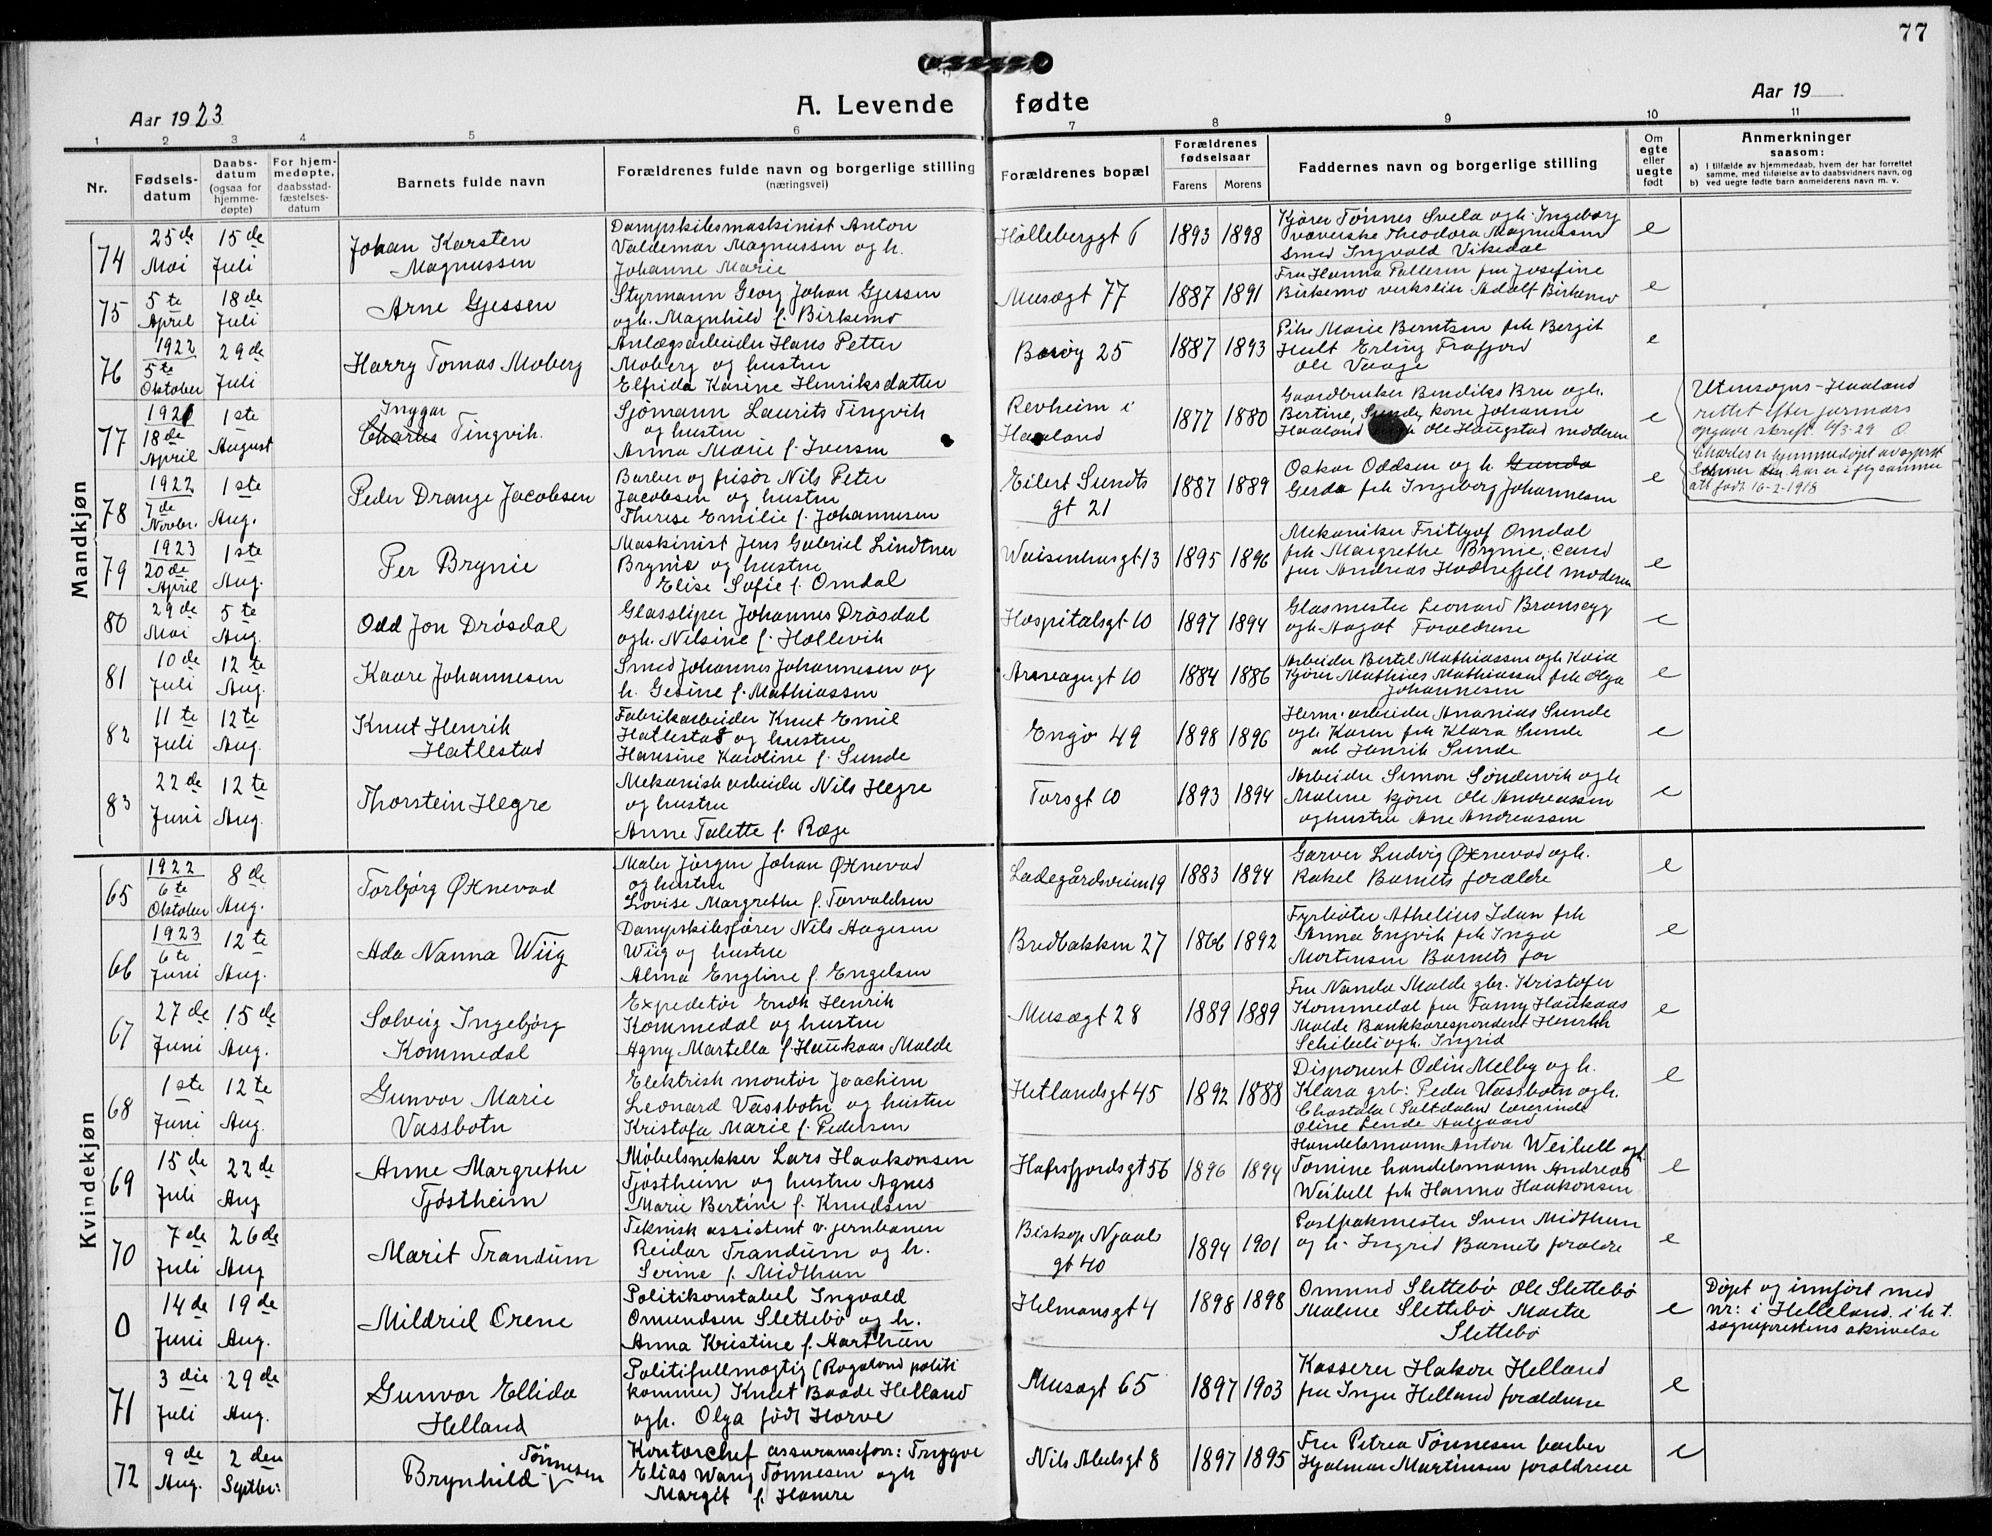 77
Aar 1923
A. Levende fødte
Aar 19
1 2 3 4 5 6 7 8 9 10 11
Nr.
Fødselsdatum
Daabsdatum (ogsaa for hjemmedøpte)
For hjemmedøpte, daabsstadfæstelsesdatum
Barnets fulde navn
Forældrenes fulde navn og borgerlige stilling (næringsvei)
Forældrenes bopæl
Forældrenes fødselsaar
Farens Morens
Faddernes navn og borgerlige stilling
Om egte eller uegte født
Anmerkninger saasom:
a) I tilfælde av hjemmedaab, hvem der har forrettet samme, med tilføielse av to daabsvidners navn, og
b) ved uegte fødte barn anmelderens navn m. v.
Mandkjøn
74
25de Mai
15de Juli
Johan Karsten
Magnussen
Dampskibsmaskinist Anton
Valdemar Magnussen og h.
Johanne Marie
Holleberggt 6
1893 1898
Kjører Tønnes Svela og h. Ingeborg
væverske Theodora Magnussen
smed Ingvald Vikedal
e
75
5te April
18de Juli
Arne Gjessen
Styrmann Georg Johan Gjessen
og h. Magnhild f. Birkemo
Musøgt 77
1887 1891
Fru Hanna Pallesen fru Josefine
Birkemo verkseier Adolf Birkemo
e
76
1922
5te Oktober
29de Juli
Harry Tomas Moberg
Anlægsarbeider Hans Petter
Moberg og hustru
Elfrida Karine Henriksdatter
Borøy 25
1887 1893
Pike Marie Berntsen frk Bergit
Hult Erling Frafjord
Ole Vaage
e
77
1921
18de April
1ste August
Inggar
Charles Tingvik.
Sjømann Laurits Tingvik
og hustru
Anna Marie f. Iversen
Revheim i
Haaland
1877 1880
Gaardbruker Bendiks Bru og h.
Bertine, Sunde, kone Johanne
Haaland Ole Haugstad moderen
e
Utensogns - Haaland
rettet efter farmors
opgave skrift. 4/3-29 O
Charles er hjemmedøpt av
att født 16-2-1918
78
1922
7de Novbr.
1ste Aug.
Peder Drange Jacobsen
Barber og frisør Nils Peter
Jacobsen og hustru
Therese Emilie f. Johannesen
Eilert Sundts
gt 21
1887 1889
Oskar Oddsen og h Gunda
Gerda frk Ingeborg Johannesen
e
79
1923
20de April
1ste Aug.
Per Brynie
Maskinist Jens Gabriel Lindtner
Brynie og hustru
Elise Sofie f. Omdal
Waisenhusgt 13
1895 1896
Mekaniker Fritjof Omdal
frk Margrethe Brynie, cand
jur Andreas Hodnefjell moderen
e
80
29de Mai
5te Aug.
Odd Jon Drøsdal
Glassliper Johannes Drøsdal
og h. Nilsine f. Hollevik
Hospitalsgt 10
1897 1894
Glasmester Leonard Bransegg
og h. Aagot Foreldrene
e
81
10de Juli
12te Aug.
Kaare Johannesen
Smed Johannes Johannesen og
h. Gesine f. Mathiassen
Arneagegt 10
1884 1886
Arbeider Bertel Mathiassen og h Kaia
Kjører Mathias Mathiassen frk Olga
Johannesen
e
82
11te Juli
12te Aug.
Knut Henrik
Hatlestad
Fabrikarbeider Knut Emil
Hatlestad og hustru
Hansine Karoline f. Sunde
Engø 49
1898 1896
Herm. arbeider Ananias Sunde
og h Karen frk Klara Sunde
arb Henrik Sunde
e
83
22de Juni
12te Aug.
Thorstein Hegre
Mekanisk arbeider Nils Hegre
og hustru
Anne Talette f. Røge
Torsgt 10
1893 1894
Arbeider Simon Søndervik og h
Maline kjører Ole Andreassen
og hustru Ane Andreassen
e
Kvindekjøn
65
1922
6te Oktober
8de Aug.
Torbjørg Øxnevad
Maler Jørgen Johan Øxnevad
og hustru
Lovise Margrethe f. Torvaldsen
Ladegårdsveien 19
1883 1894
Garver Ludvig Øxnevad og h.
Rakel Barnets forældre
e
66
1923
6te Juni
12te Aug.
Ada Nanna Wiig
Dampskibsfører Nils Aagesen
Wiig og hustru
Alma Engline f. Engelsen
Bredbakken 27
1866 1892
Fyrbøter Athelius Idan frk
Anna Engvik frk Inga
Mortensen Barnets far
e
67
27de Juni
15de Aug.
Solveig Ingebjørg
Kommedal
Expeditør Endr Henrik
Kommedal og hustru
Agny Martella f. Haukaas Malde
Musøgt 28
1889 1889
Fru Nanda Malde gbr. Kristofer
Kommedal fru Fanny Haukaas
Malde Bankkorrespondent Henrik
Schibeli og h. Ingrid
e
68
1ste Juni
12te Aug.
Gunvor Marie
Vassbotn
Elektrisk montør Joachim
Leonard Vassbotn og hustru
Kristofa Marie f. Pedersen
Hetlandsgt 45
1892 1888
Disponent Odin Melby og h.
Klara grb: Peder Vassbotn og h.
Chastala (Saltdalen) lærerinde
Oline Lende Aalgaard
e
69
15de Juli
22de Aug
Anne Margrethe
Tjøstheim
Møbelsnekker Lars Haakonsen
Tjøstheim og hustru Agnes
Marie Bertine f. Knudsen
Hafrsfjordsgt 56
1896 1894
Handelsmann Anton Weibell og h
Tomine handelsmann Andreas
Weibell frk Hanna Haakonsen
e
70
7de Juli
26de Aug
Marit Trandum
Teknisk assistent v. jernbanen
Reidar Trandum og h.
Serine f. Midthun
Biskop Njaals
gt 40
1894 1901
Postpakmester Sven Midthun
og h. Ingrid Barnets forældre
e
0
14de Juni
19de Aug.
Mildrid Orene
Politikonstabel Ingvald
Omundsen Slettebø og h.
Anna Kristine f. Aarthun
Helmansgt 4
1898 1898
Omund Slettebø Ole Slettebø
Maline Slettebø Marta
Slettebø
e
Døpt og innført med
nr: i Helleland i h.t.
sogneprestens skrivelse
71
3die Juli
29de Aug.
Gunvor Ellida
Helland
Politifullmægtig (Rogaland politi
kammer) Knut Baade Helland
og h. Olga født Horve
Musøgt 65
1897 1903
Kasserer Hakon Helland
fru Inger Helland foreldrene
e
72
9de Aug.
2den Septbr:
Tønnesen
Brynhild
Kontorchef assuransefor: Tryggve
Elias Wang Tønnesen og h
Margit f. Hamre
Nils Abelsgt 8
1897 1895
Fru Petrea Tønnesen barber
Hjalmar Martinsen foreldrene
e